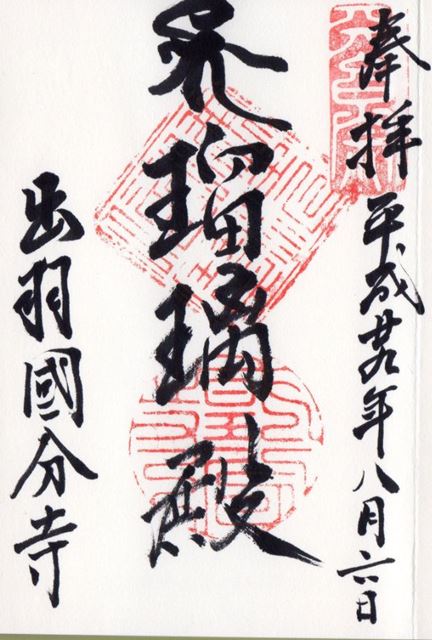 奉拝 平成廿九年八月六日
瑠璃殿
出羽國分寺